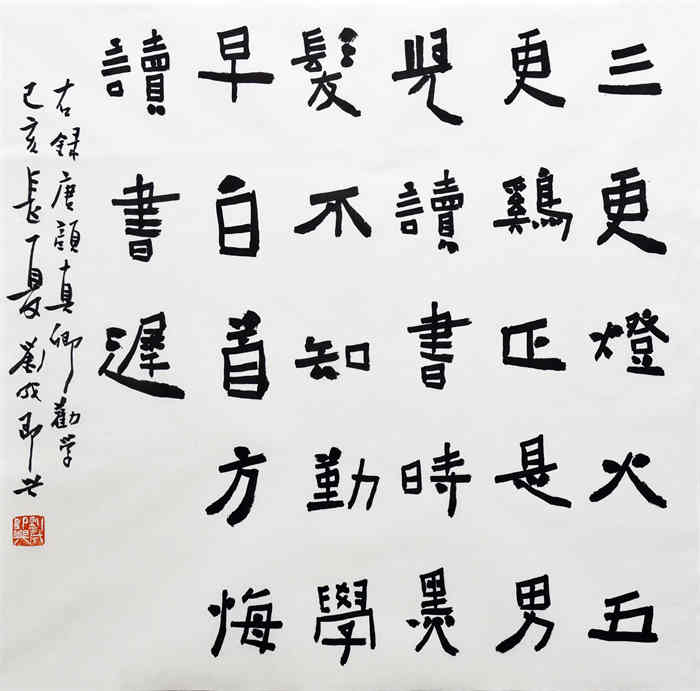 三更燈火五
更鷄正是男
兒讀書時黑
髮不知勤學
早白首方悔
讀書遲
右録唐顔真卿勸学
己亥長夏劉成即